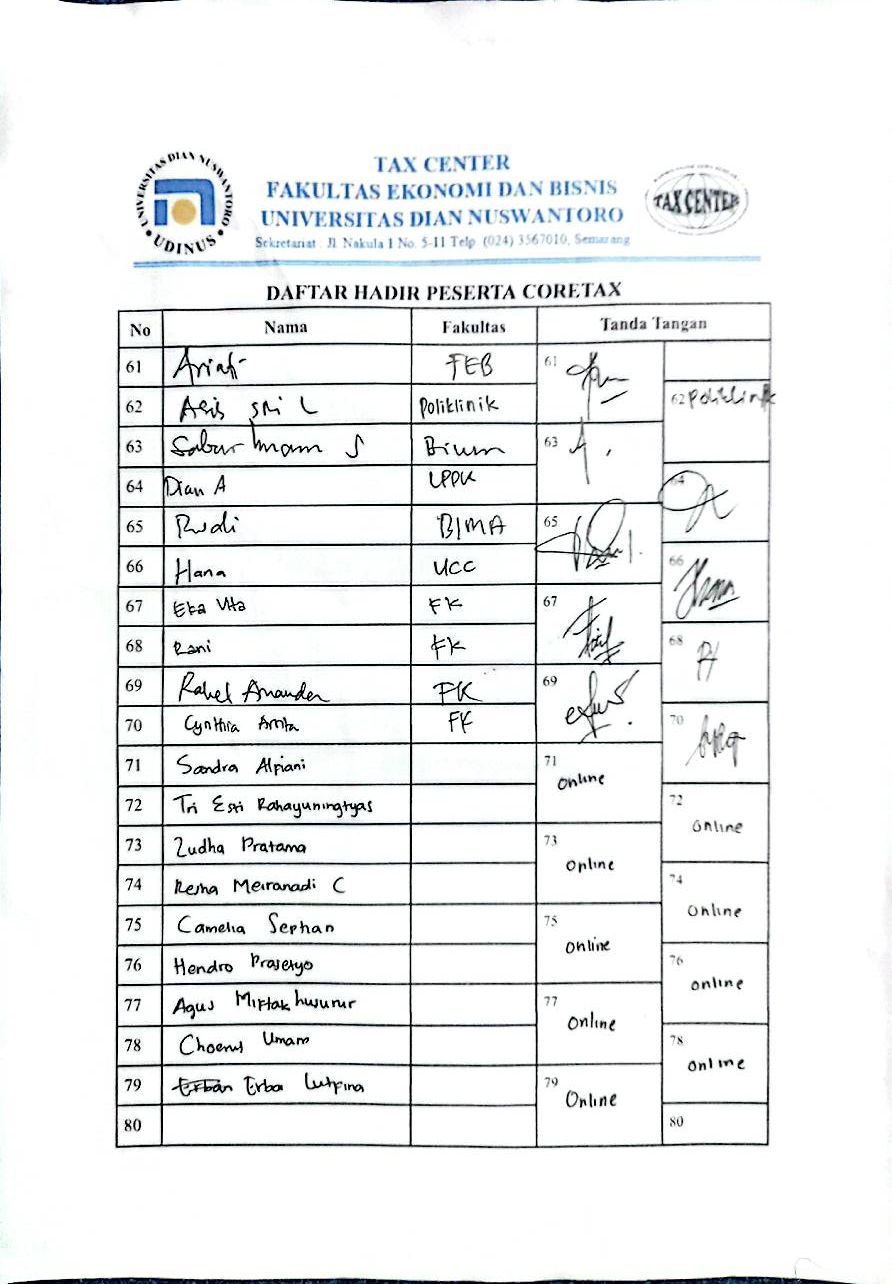 UNIVERSITAS DIAN NUSWANTORO
UDINUS
TAX CENTER
FAKULTAS EKONOMI DAN BISNIS
UNIVERSITAS DIAN NUSWANTORO
Sekretariat : Jl. Nakula I No. 5-11 Telp. (024) 3567010, Semarang
TAX CENTER
DAFTAR HADIR PESERTA CORETAX
No Nama Fakultas Tanda Tangan
61 Ariati FEB 61
62 Asis Sri L Poliklinik 62 Poliklinik
63 Sabar Imam S Birum 63
64 Dian A LPPK 64
65 Rudi BIMA 65
66 Hana UCC 66
67 Eka Uta FK 67
68 Rani FK 68
69 Rahel Amanda FK 69
70 Cynthia Arita FK 70
71 Sandra Alpiani 71 Online
72 Tri Esti Rahayuningtyas 72 Online
73 Zudha Pratama 73 Online
74 Resha Meiranadi C 74 Online
75 Camelia Sephan 75 Online
76 Hendro Prasetyo 76 Online
77 Agus Miftakhusurur 77 Online
78 Choerul Umam 78 Online
79 Erba Lutfina 79 Online
80 80